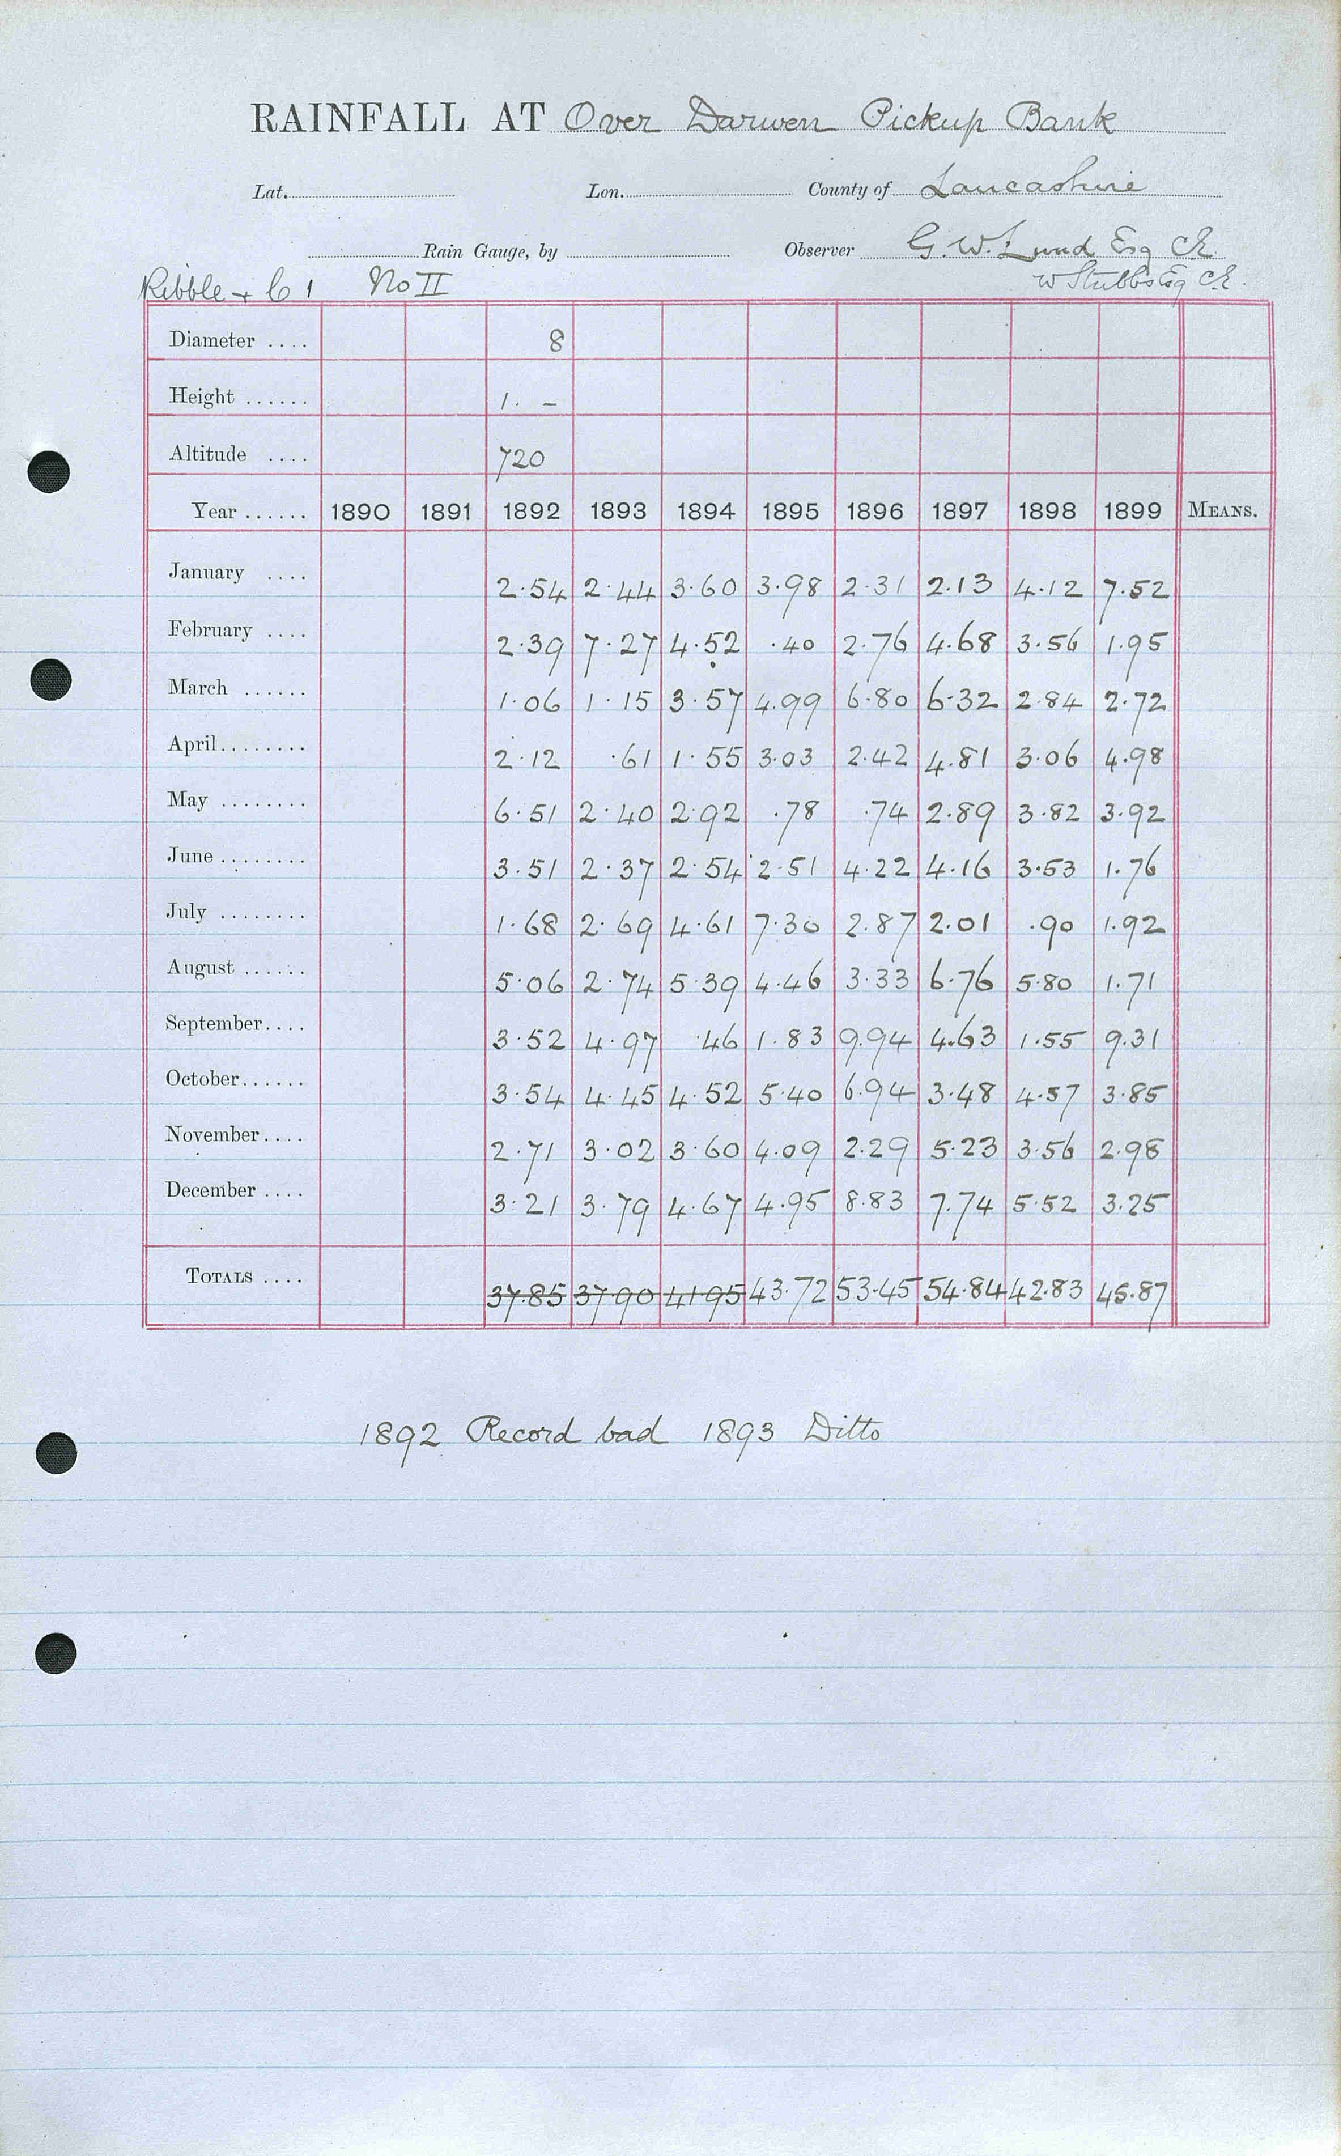 RAINFALL AT Over Darwen Pickup Bank
Lat. Lon. County of Lancashire
Rain Gauge, by Observer G. W. Lund Esq CE
Ribble + C 1 No II W Stubbs Esq CE.
Diameter .... 8
Height ...... 1. –
Altitude .... 720
Year ...... 1890 1891 1892 1893 1894 1895 1896 1897 1898 1899 MEANS.
January .... 2.54 2.44 3.60 3.98 2.31 2.13 4.12 7.52
February .... 2.39 7.27 4.52 .40 2.76 4.68 3.56 1.95
March ...... 1.06 1.15 3.57 4.99 6.80 6.32 2.84 2.72
April ........ 2.12 .61 1.55 3.03 2.42 4.81 3.06 4.98
May ........ 6.51 2.40 2.92 .78 .74 2.89 3.82 3.92
June ........ 3.51 2.37 2.54 2.51 4.22 4.16 3.53 1.76
July ........ 1.68 2.69 4.61 7.30 2.87 2.01 .90 1.92
August ...... 5.06 2.74 5.39 4.46 3.33 6.76 5.80 1.71
September .... 3.52 4.97 .46 1.83 9.94 4.63 1.55 9.31
October ...... 3.54 4.45 4.52 5.40 6.94 3.48 4.57 3.85
November .... 2.71 3.02 3.60 4.09 2.29 5.23 3.56 2.98
December .... 3.21 3.79 4.67 4.95 8.83 7.74 5.52 3.25
TOTALS .... 37.85 37.90 41.95 43.72 53.45 54.84 42.83 45.87
1892 Record bad 1893 Ditto